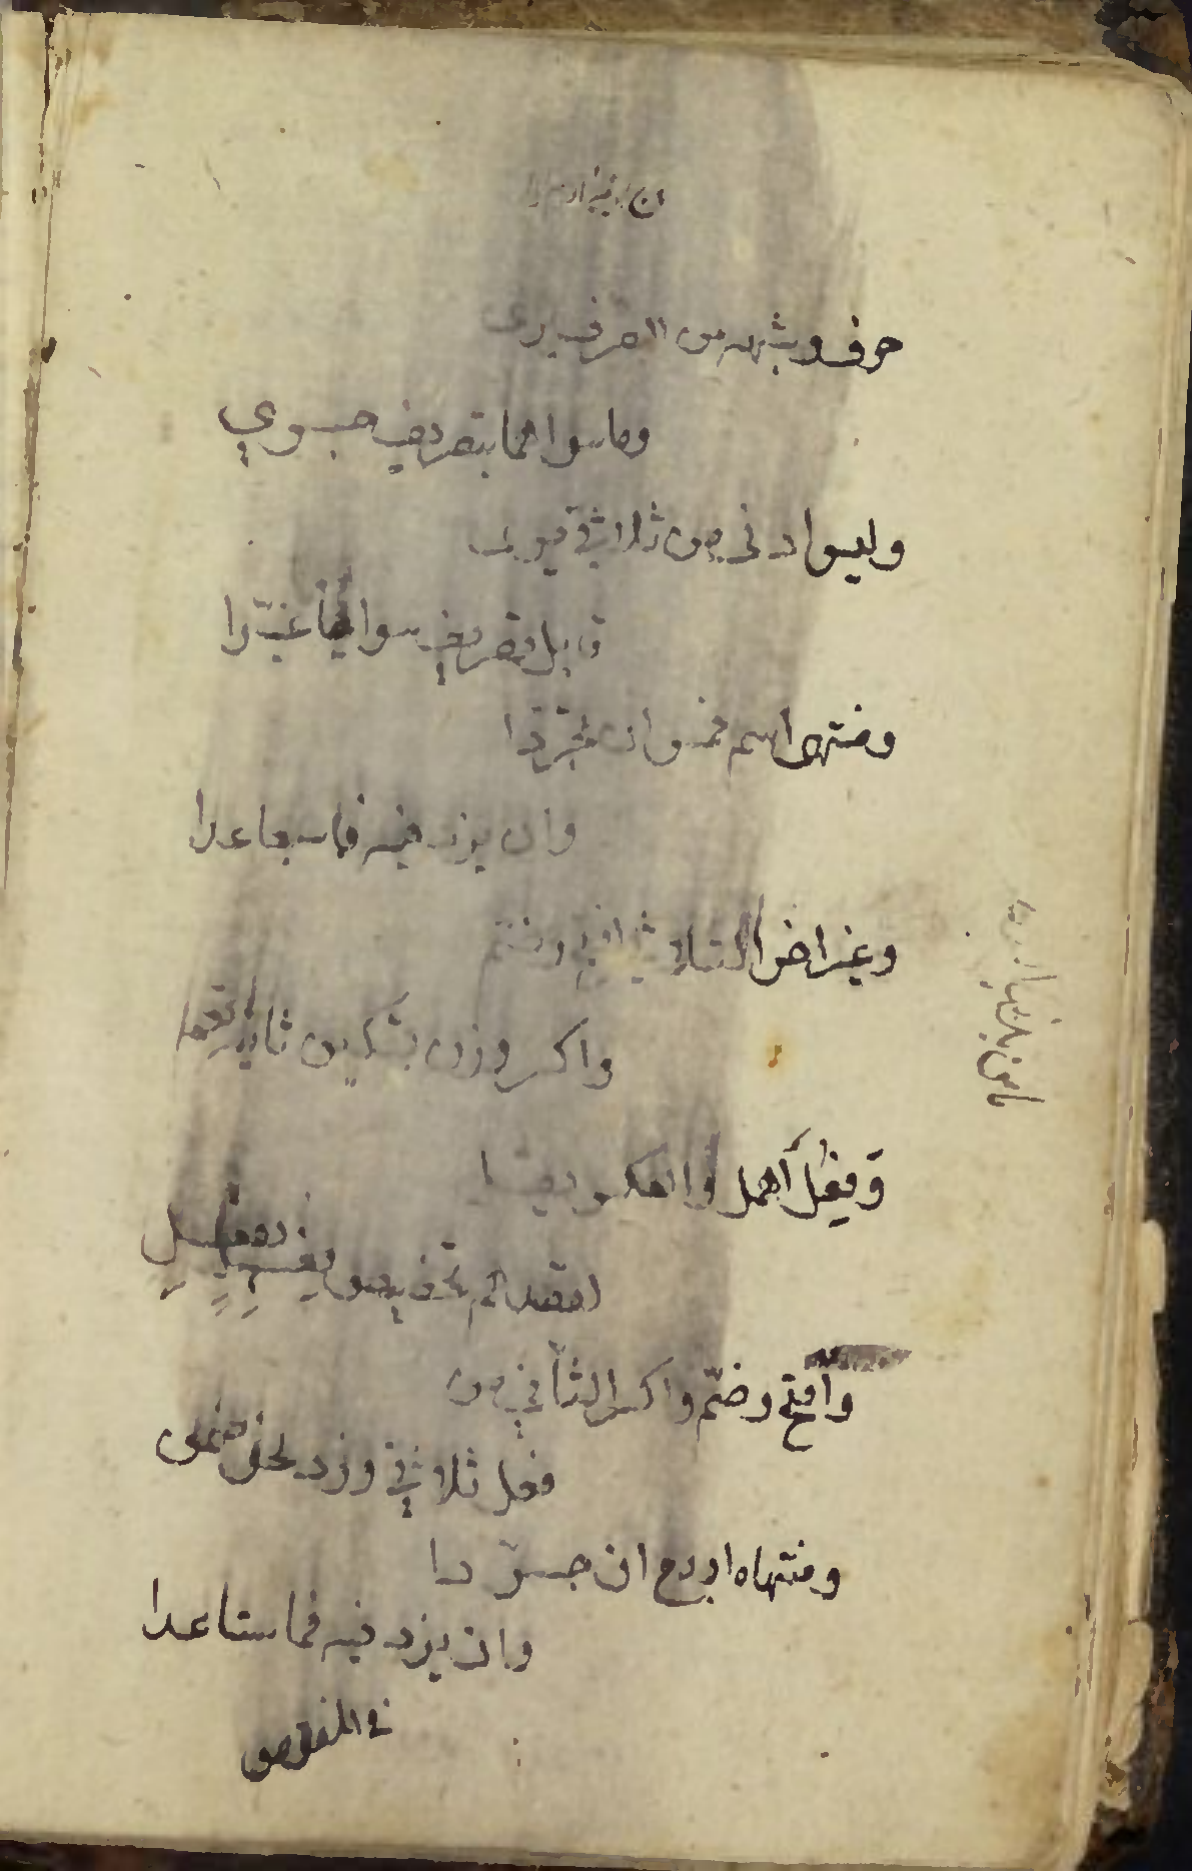 حرف وشبهه من الصرف برى
وما سواهما بتصريف حري
وليس ادنى من ثلاثي يرى
قابل تصريف سوى ما غيّرا
ومنتهى اسم خمس ان تجرّدا
وان يزد فيه فما سبعا عدا
وغير اخر الثلاثي افتح وضم
واكسر وزد تسكين ثانيه تعم
وفِعُل أهمل والعكس يقل
لقصدهم تخصيص فعل بفُعِل
وافتح وضمّ واكسر الثاني من
فعل ثلاثي وزد نحو ضمن
ومنتهاه اربع ان جرّدا
وان يزد فيه فما ستا عدا